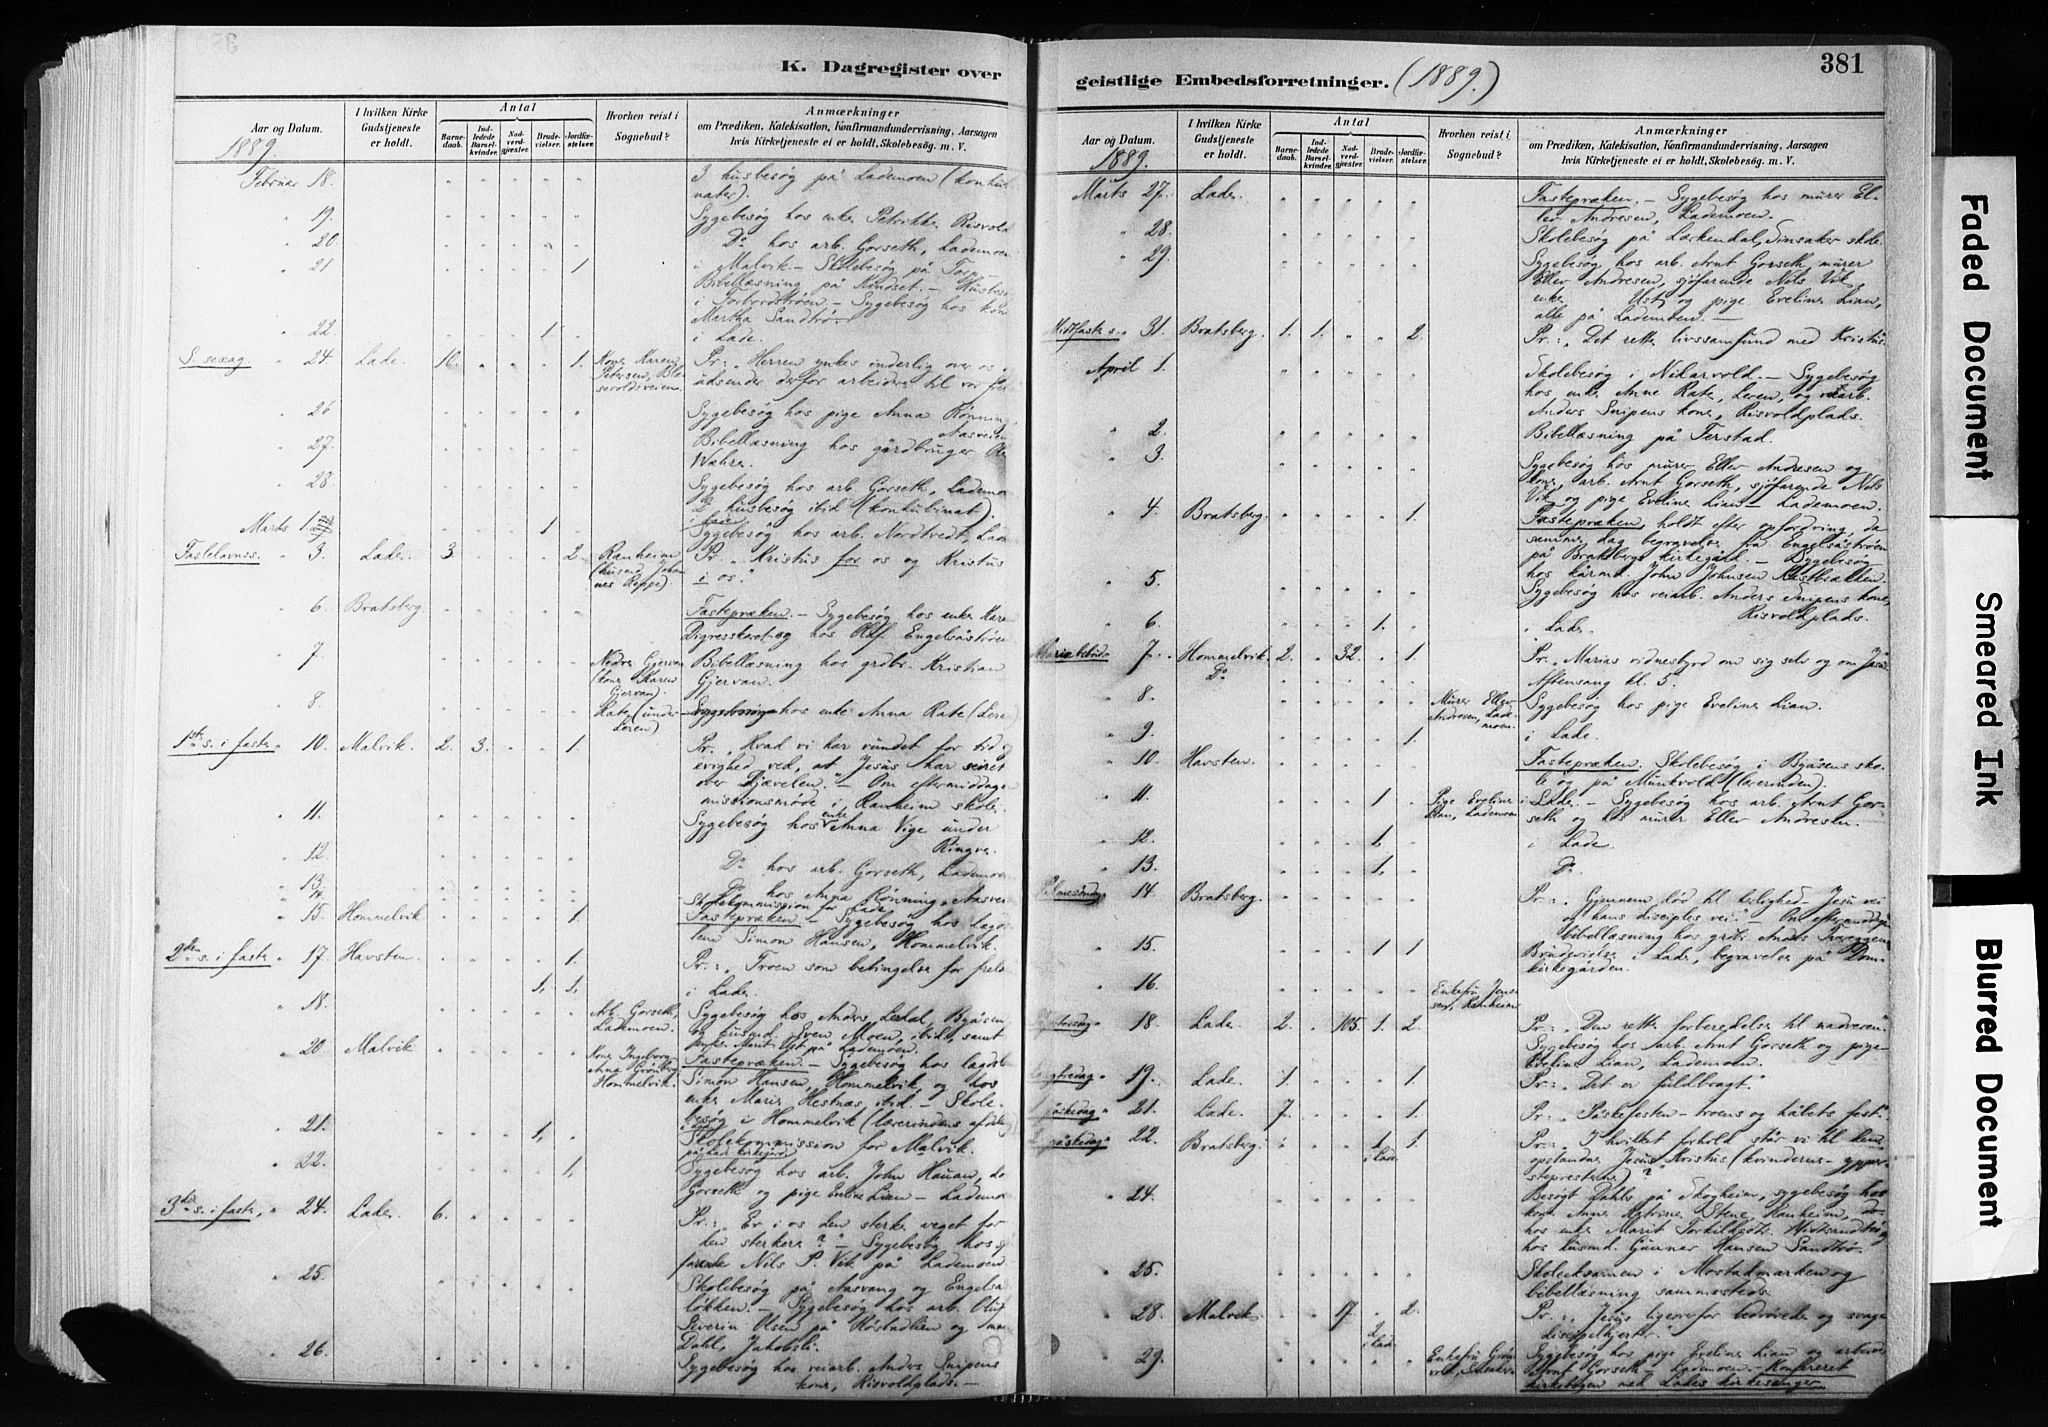 K. Dagregister over
geistlige Embedsforretninger. (1889.)
381
Aar og Datum.
1889
I hvilken Kirke
Gudstjeneste
er holdt.
Antal
Barne-
daab.
Ind-
ledede
Barsel-
kvinder.
Nad-
verd-
gjester.
Brude-
vielser.
Jordfæ-
stelser.
Hvorhen reist i
Sognebud?
Anmærkninger
om Prædiken, Katekisation, Konfirmandundervisning, Aarsagen
hvis Kirketjeneste ei er holdt, Skolebesøg. m. V.
Februar 18. 3 husbesøg på Lademoen (konkubi-
nater).
" 19. Sygebesøg hos enke Petrikke Risvold
" 20 Do hos arb. Gorseth, Lademoen
" 21 1 i Malvik. – Skolebesøg på Torp
Bibellæsning på
– Sygebesøg hos kone
Martha Sandtrø.
" 22 1. i Lade.
S. sexag. " 24 Lade. 10. 1. Kone Karen
Petersen,
Pr.: „Herren ynkes inderlig over os,
udsender derfor arbeidere til vor
" 26 Sygebesøg hos pige Anna Rønning
" 27. Bibellæsning hos gårdbruger
Wahre.
" 28 Sygebesøg hos arb. Gorseth, Lademoen
2 husbesøg ibid (konkubinat).
Marts 1. 1 i Lade
Sygebesøg hos arb. Nordtvedt,
Fastelavnss. " 3. Lade. 3 2. Ranheim
(husmd. Johan
nes Reppe)
Pr. „Kristus for os og Kristus
i os."
" 6. Bratsberg. Fastepræken. – Sygebesøg hos enke
og hos
" 7. Nedre Gjervan
(kone Karen
Gjervan).
Bibellæsning hos grdbr. Kristian
Gjervan.
" 8. Rate (under
Leren)
Sygebesøg hos enke Anna Rate (Leren
1ste s. i faste " 10. Malvik. 2. 3. 1. Pr. „Hvad vi har vundet for tid og
evighed ved, at Jesus har seiret
over Djævelen." – Om eftermiddagen
missionsmøde i Ranheim skole.
" 11. Sygebesøg hos enke Anna Vige under
Ringve.
" 12 Do hos arb. Gorseth, Lademoen
" 13 Do hos Anna Rønning,
14 Skolekommission for Lade
" 15. Hommelvik 1. Fastepræken – Sygebesøg hos
Simon Hansen, Hommelvik.
2den s. i faste " 17. Havsten. 1. Pr.: „Troen som betingelse for frelse
1. 1. i Lade.
" 18. Arb. Gorseth,
Lademoen.
Sygebesøg hos Anders Ledal, Byåsen
og husmd. Even Moen, ibid., samt
enke Marit Ust på Lademoen.
" 20. Malvik Kone Ingeborg
Anna Grønberg
Hommelvik.
Fastepræken. – Sygebesøg hos
Simon Hansen, Hommelvik, og hos
enke Marie Hestnæs ibid. – Skole-
besøg i Hommelvik (lærerindens afdeling
" 21. 1. i Lade
Skolekommission for Malvik.
" 22. 1. på Lade kirkegård
Sygebesøg hos arb. John Hauan,
Gorseth og pige Eveline Lian – Lademoen
3die s. i faste, " 24. Lade. 6. Pr.: „Er i os den sterke veget for
den sterkere?" – Sygebesøg hos sjø-
farende Nils P. Vik på Lademoen
" 25. Skolebesøg på Aasvang og Engelsås-
løkken. – Sygebesøg hos arb. Oluf
Severin Olsen på
Dahl, Jakobsli.
" 26. Sygebesøg hos veiarb. Anders Snipens
kone, Risvoldplads. –
Aar og Datum.
1889.
I hvilken Kirke
Gudstjeneste
er holdt.
Antal
Barne-
daab.
Ind-
ledede
Barsel-
kvinder.
Nad-
verd-
gjester.
Brude-
vielser.
Jordfæ-
stelser.
Hvorhen reist i
Sognebud?
Anmærkninger
om Prædiken, Katekisation, Konfirmandundervisning, Aarsagen
hvis Kirketjeneste ei er holdt, Skolebesøg. m. V.
Marts 27. Lade. Fastepræken. – Sygebesøg hos murer El-
lev Andresen, Lademoen.
" 28. Skolebesøg på Lækendal, Tinsaker skole.
" 29. Sygebesøg hos arb. Arnt Gorseth, murer
Ellev Andresen, sjøfarende Nils Vik,
enke Ust og pige Eveline Lian,
alle på Lademoen. –
Midtfaste s. " 31. Bratsberg. 1. 1. 2. Pr.: „Det rette livssamfund med Kristus.
April 1. Skolebesøg i Nidarvold. – Sygebesøg
hos enke Anne Rate, Leren, og veiarb.
Anders Snipens kone, Risvoldplads.
" 2. Bibellæsning på Terstad.
" 3. Sygebesøg hos murer Ellev Andresen og
kone, arb. Arnt Gorseth, sjøfarende Nils
Vik og pige Eveline Lian – Lademoen.
" 4. Bratsberg. 1. Fastepræken, holdt efter opfordring, da
samme dag begravelse fra Engelsåstrøen
på Bratsberg kirkegård. – Sygebesøg
hos kårmd. John Johnsen
" 5. Sygebesøg hos veiarb. Anders Snipens kone,
Risvoldplads.
" 6. 1. i Lade.
Mariæ bebud. " 7. Hommelvik. 2. 32. 1. Pr. „Marias vidnesbyrd om sig selv og om Jesus.
Do Aftensang kl. 5.
" 8. Murer Ellev
Andresen, Lade-
moen.
Sygebesøg hos pige Eveline Lian.
" 9. 1. i Lade.
" 10. Havsten. Fastepræken. Skolebesøg i Byåsens sko-
le og på Munkvold (lærerinden).
" 11. 1 Pige Eveline
Lian, Lademoen
i Lade. – Sygebesøg hos arb. Arnt Gor-
seth og hos murer Ellev Andresen.
" 12. 1. i Lade
" 13. 1. Do.
Palmesøndag " 14. Bratsberg. Pr.: „Gjennem død til herlighed – Jesu vei
og hans disciples vei." – Om eftermiddagen
bibellæsning hos grdbr. Anders
" 15. 1 1 Brudevielse i Lade, begravelse på Dom-
kirkegården.
" 16. Enkefru Jen-
sen, Ranheim
Skjærtorsdag " 18. Lade. 2. 105. 1. 2. Pr.: „Den rette forberedelse til nadveren"
Sygebesøg hos arb. Arnt Gorseth og pige
Eveline Lian, Lademoen.
Langfredag " 19. Lade. 1. 1. Pr.: „Det er fuldbragt."
1 påskedag " 21. Lade. 7. 1. Pr.: „Påskefesten – troens og håbets fest."
2 påskedag " 22. Bratsberg. 1. i Lade. 1. Pr.: „I hvilket forhold står vi til den
opstandne Jesus Kristus (kvinderne – ypper-
stepresterne)?"
" 24. Besøgt Dahls på Skogheim, sygebesøg hos
kone Anne Katrine Stene, Ranheim,
hos enke Marit
hos husmd. Gunnar Hansen Sandtrø.
" 25. Skoleeksamen i Mostadmarken og
bibellæsning sammesteds.
" 28 Malvik 17. 2. i Lade. 2. Pr.: „Jesus ligeoverfor bedrøvede og svage
discipelhjerter.
" 29. Enkefru
Sygebesøg hos pige Eveline Lian og arbeider
Arnt Gorseth, Lademoen. – Konfereret
kirkebogen med Lades kirkesanger.
Faded Document
Smeared Ink
Blurred Document